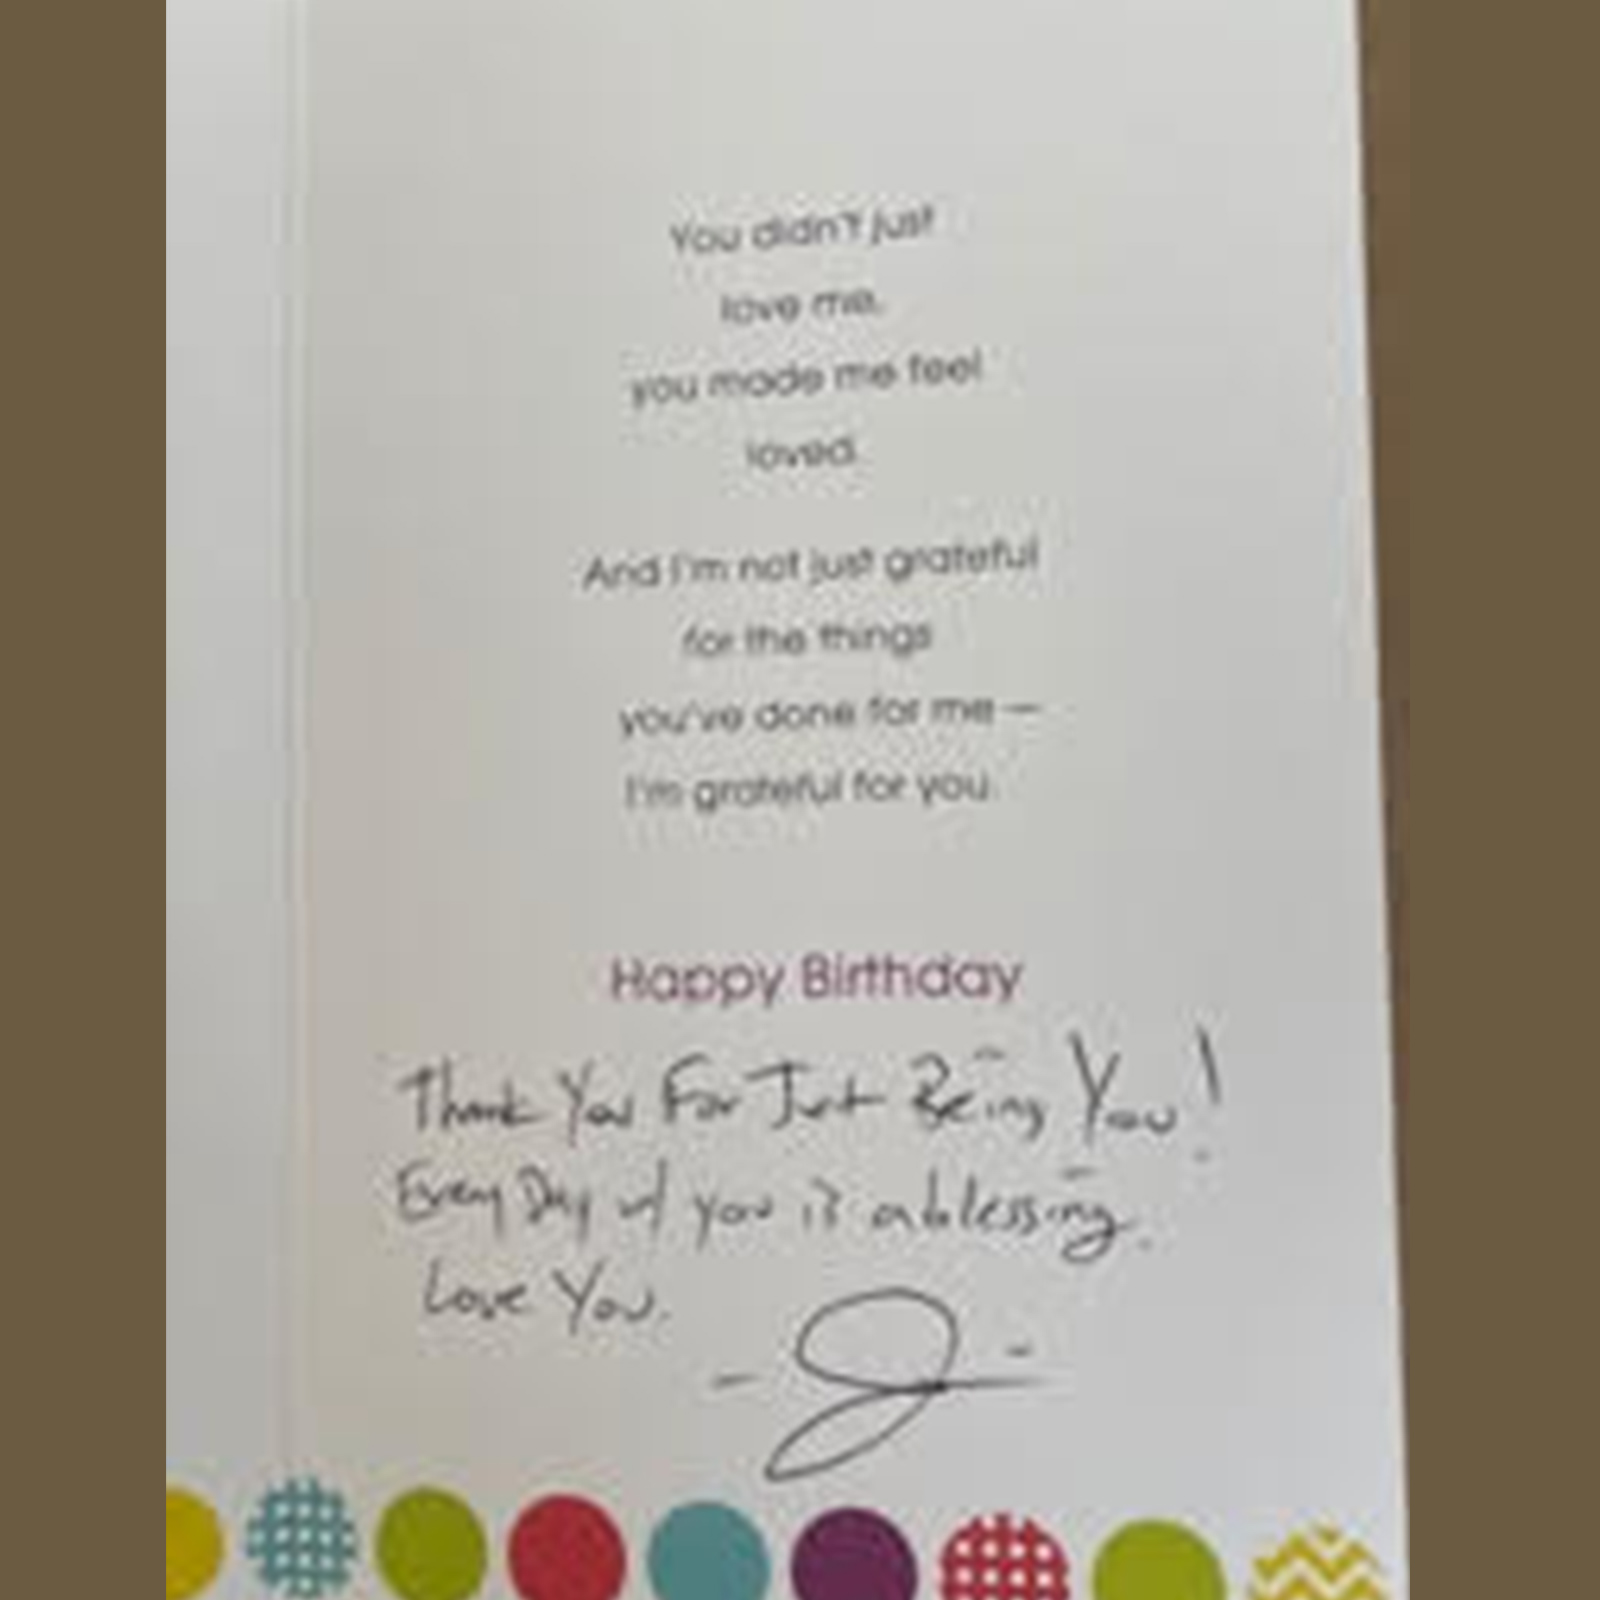 You didn't just
love me,
you made me feel
loved.
And I'm not just grateful
for the things
you've done for me —
I'm grateful for you.
Happy Birthday
Thank You For Just Being You!
Every Day w/ you is a blessing.
Love You.